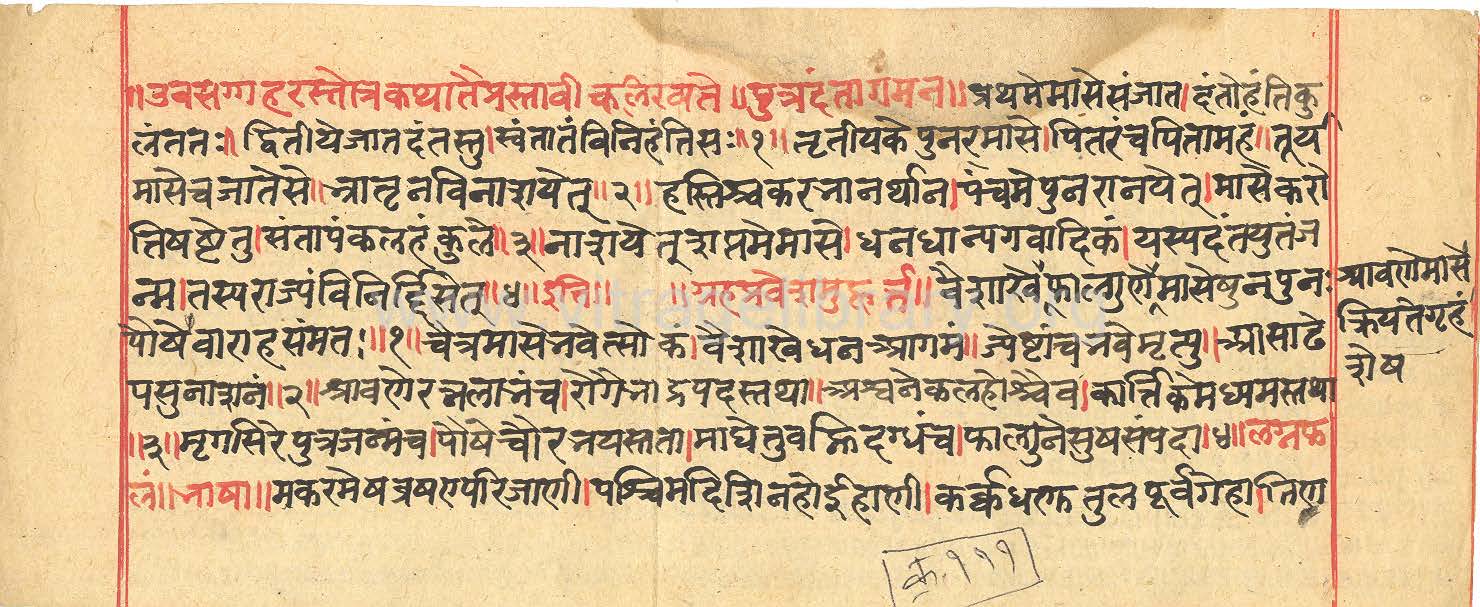 ॥उवसग्गहरस्तोत्रकथातेप्रस्तावीकलिख्यते॥पुत्रदंतागमन॥प्रथमेमासेसंजात।दंतोहंतिकु
लंततः॥द्वितीयेजातदंतस्तु।स्वंतातंविनिहंतिसः॥१॥तृतीयकेपुनरमासे।पितरंचपितामहं॥तूर्य
मासेचजातेसे॥भ्रातृनविनाशयेत्॥२॥हस्तिश्चकरभानर्थान।पंचमेपुनरानयेत्।मासेकरो
तिषष्टेतु।संतापंकलहंकुले॥३॥नाशयेत्शप्तमेमासे।धनधान्यगवादिकं।यस्यदंतयुतंज
न्म।तस्यराज्यंविनिर्दिसेत्॥४॥इति॥ ॥ग्रहप्रवेशमुहूर्त्त॥वैशाखेफाल्गुणेमासेषुनपुनः
पौषेवाराहसंमतः॥१॥चैत्रमासेनवेत्सोकं।वैशाखेधनआगमं॥ज्येष्टांचभवेमृत्यु॥आसाढे
पसुनाशनं॥२॥श्रावणेरत्नलाभंच।रोगेभाद्रपदस्तथा॥अश्वनेकलहोश्चैव।कार्त्तिकेमध्यमस्तथा
॥३॥मृगसिरेपुत्रजन्मंच।पौषेचौरभयस्तता।माघेतुवह्निदग्धंच।फाल्गुनेसुषसंपदा॥४॥लग्नफ
लं॥भाषा॥मकरमेषव्रषएपरिजाणी।पश्चिमदिशिनहोईहाणी।कर्कधणतुलपूर्वगेहा।तिण
श्रावणेमासे
क्रियंतेगृहं
शेष
क.१११
www.vitragelibrary.org